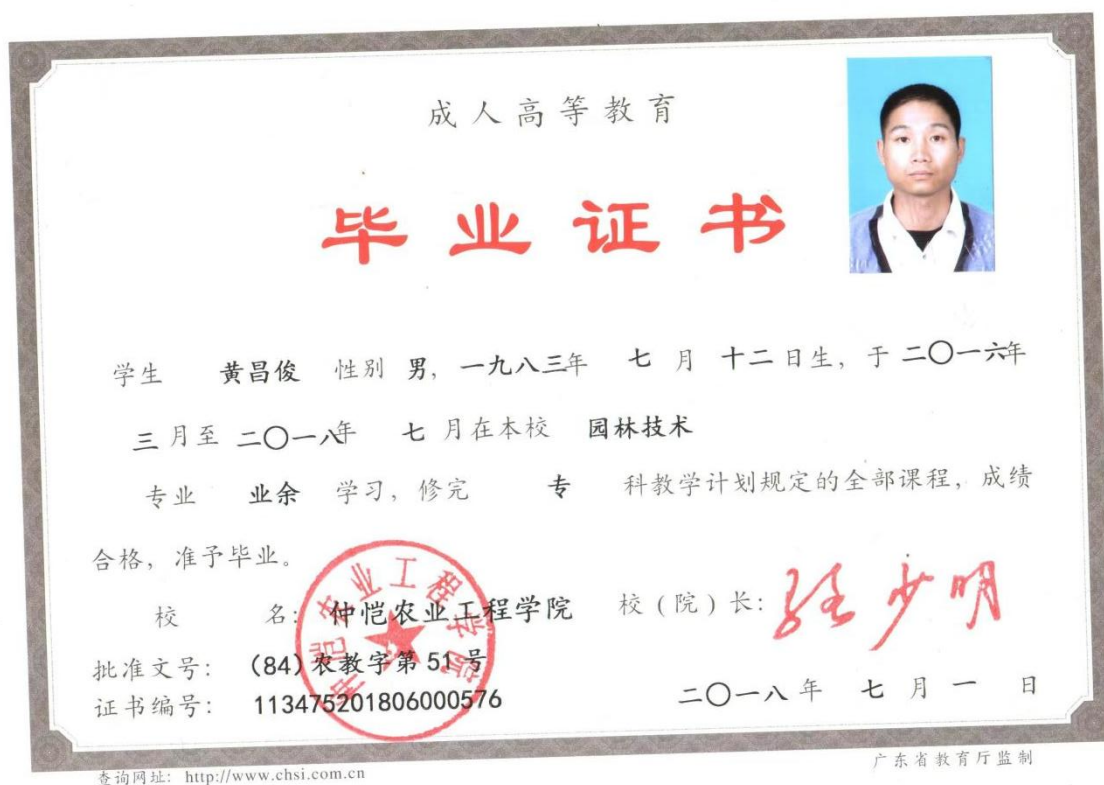 成人高等教育
毕业证书
学生 黄昌俊 性别 男，一九八三年 七 月 十二 日生，于 二〇一六年
三 月至 二〇一八年 七 月在本校 园林技术
专业 业余 学习，修完 专 科教学计划规定的全部课程，成绩
合格，准予毕业。
校 名：仲恺农业工程学院 校（院）长：
批准文号： (84)农教字第 51 号
证书编号： 113475201806000576
二〇一八 年 七 月 一 日
仲恺农业工程学院
查询网址：http://www.chsi.com.cn
广东省教育厅监制